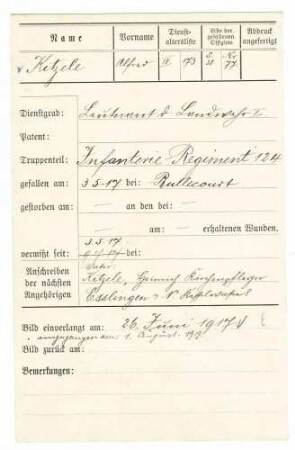 Name Vorname Dienst- altersliste Liste der gefallenen Offiziere Abdruck angefertigt
Ketzele Alfred II 173 S. Nr. 77
Dienstgrad: Leutnant d. Landwehr I
Patent:
Truppenteil: Infanterie Regiment 124
gefallen am: 3.5.17 bei: Rullecourt
gestorben am: — an den bei: —
— am: — erhaltenen Wunden.
3.5.17
vermißt seit: bei:
Vater:
Anschreiben Ketzele, Heinrich
der nächsten Esslingen a/N
Angehörigen
Bild einverlangt am: 26. Juni 1917
eingegangen am: 1. August
Bild zurück am:
Bemerkungen: